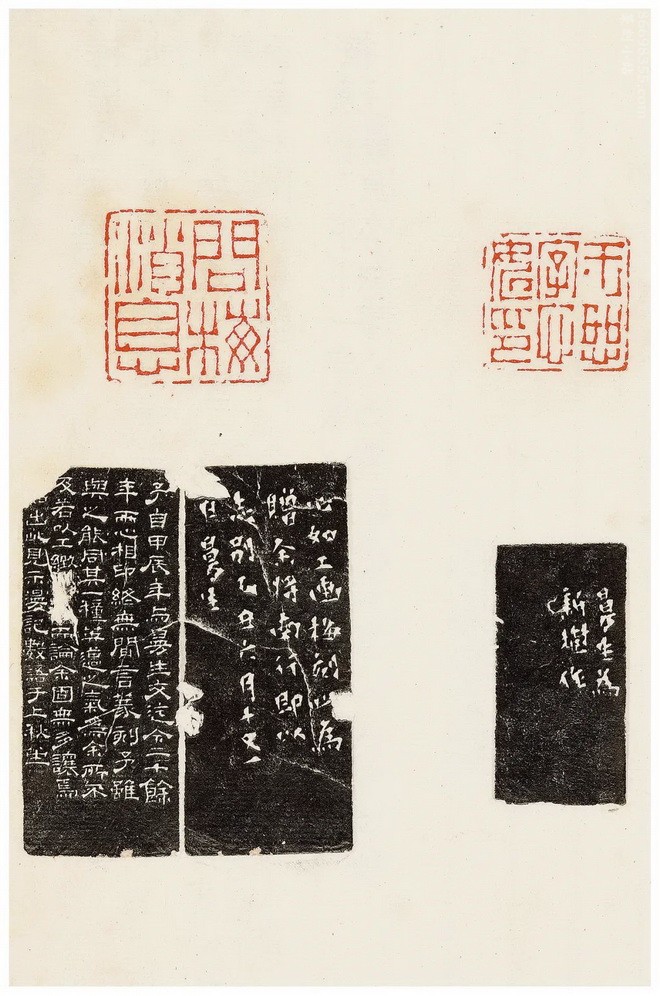 字心
印
曼生為
新樹作
問梅
消息
工画梅刻此為
贈余將南行即以
志別乙丑六月十又一
日曼生
予自甲辰年与曼生交迄今二十餘
年兩心相印終無間言篆刻予雖
與之能同其一種英邁之氣為余所不
及若以工緻而論余固無多讓焉
出此見示漫記數語于上秋堂